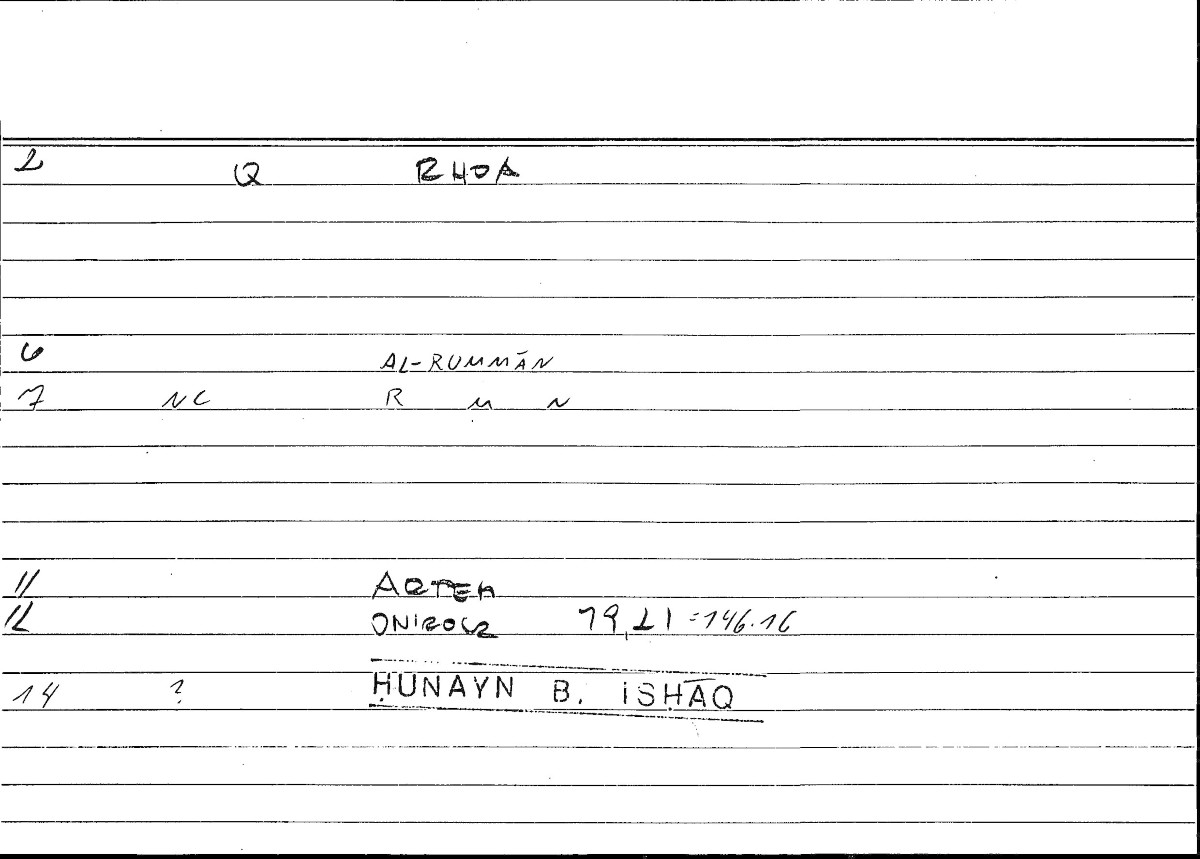 2 Q RHOA
6 AL-RUMMĀN
7 NC R M N
11 ARTEM
12 ONIROCR 79,21 =146.16
14 ? ḤUNAYN B. ISḤĀQ